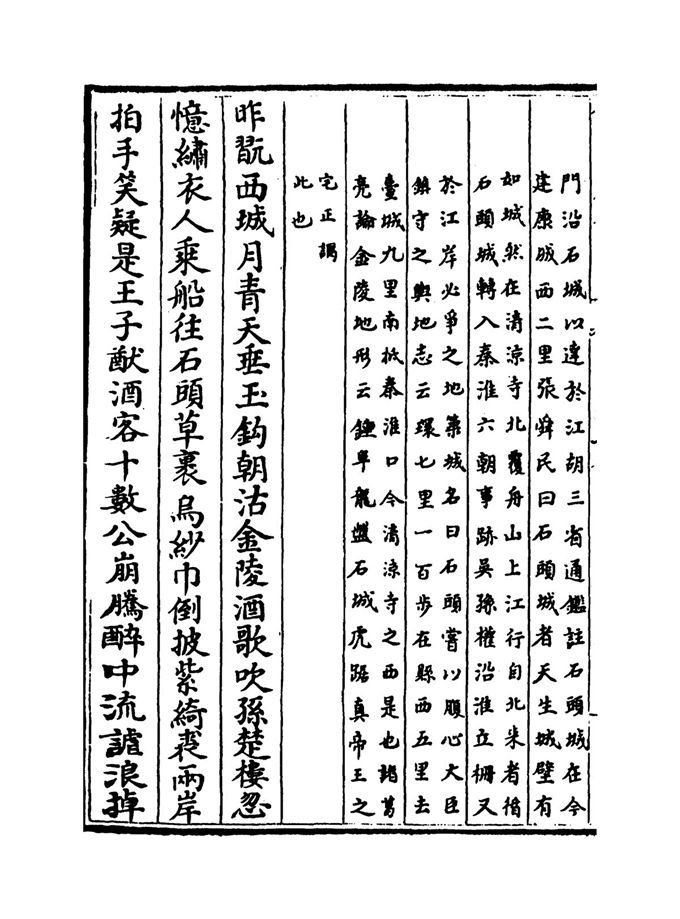 門沿石城以達於江胡三省通鑑註石頭城在今
建康城西二里張舜民曰石頭城者天生城壁有
如城然在清涼寺北覆舟山上江行自北來者循
石頭城轉入秦淮六朝事跡吳孫權沿淮立柵又
於江岸必爭之地築城名曰石頭嘗以腹心大臣
鎮守之輿地志云環七里一百步在縣西五里去
臺城九里南抵秦淮口今清涼寺之西是也諸葛
亮論金陵地形云鍾阜龍盤石城虎踞真帝王之
宅正謂
此也
昨翫西城月青天垂玉鈎朝沽金陵酒歌吹孫楚樓忽
憶繡衣人乘船往石頭草裹烏紗巾倒披紫綺裘兩岸
拍手笑疑是王子猷酒客十數公崩騰醉中流謔浪掉